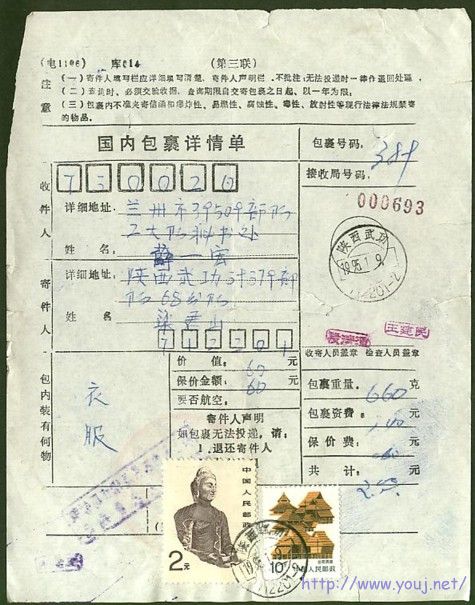 (电1106) 库614 (第三联)
注意
(一)寄件人填写栏应详细填写清楚,寄件人声明栏,不批注:无法投递时一律作退回处理。
(二)查询时,必须交验收据,查询期限自交寄包裹之日起,以一年为限;
(三)包裹内不准夹寄信函和爆炸性、易燃性、腐蚀性、毒性、放射性等现行法律法规禁寄的物品。
国内包裹详情单
包裹号码: 389
接收局号码:
000693
收件人
730020
详细地址: 兰州市39509部队
姓名:
寄件人
详细地址: 陕西武功
部队68分队
姓名
712201
陕西武功
1995.1.9
712201-2
王建民
收寄人员盖章 检查人员盖章
包内装有何物
衣服
价值: 60 元
保价金额: 60 元
要否航空:
寄件人声明
如包裹无法投递,请:
1.退还寄件人
包裹重量: 660 克
包裹资费: 元
保价费: 元
共计: 元
中国人民邮政
2元
10分
中国人民邮政
陕西武功
http://www.youj.net/